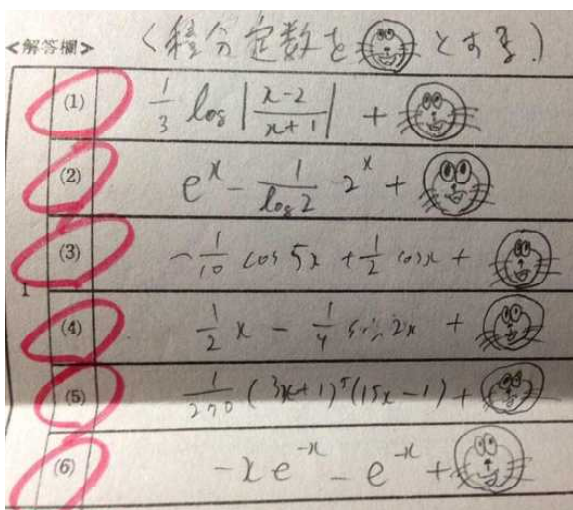 <解答欄>
(積分定数を とする.)
1
(1) 1/3 log|x-2/x+1| +
(2) e^x - 1/log2 2^x +
(3) -1/10 cos 5x + 1/2 cosx +
(4) 1/2 x - 1/4 sin 2x +
(5) 1/270 (3x+1)^5 (15x-1) +
(6) -xe^-x - e^-x +